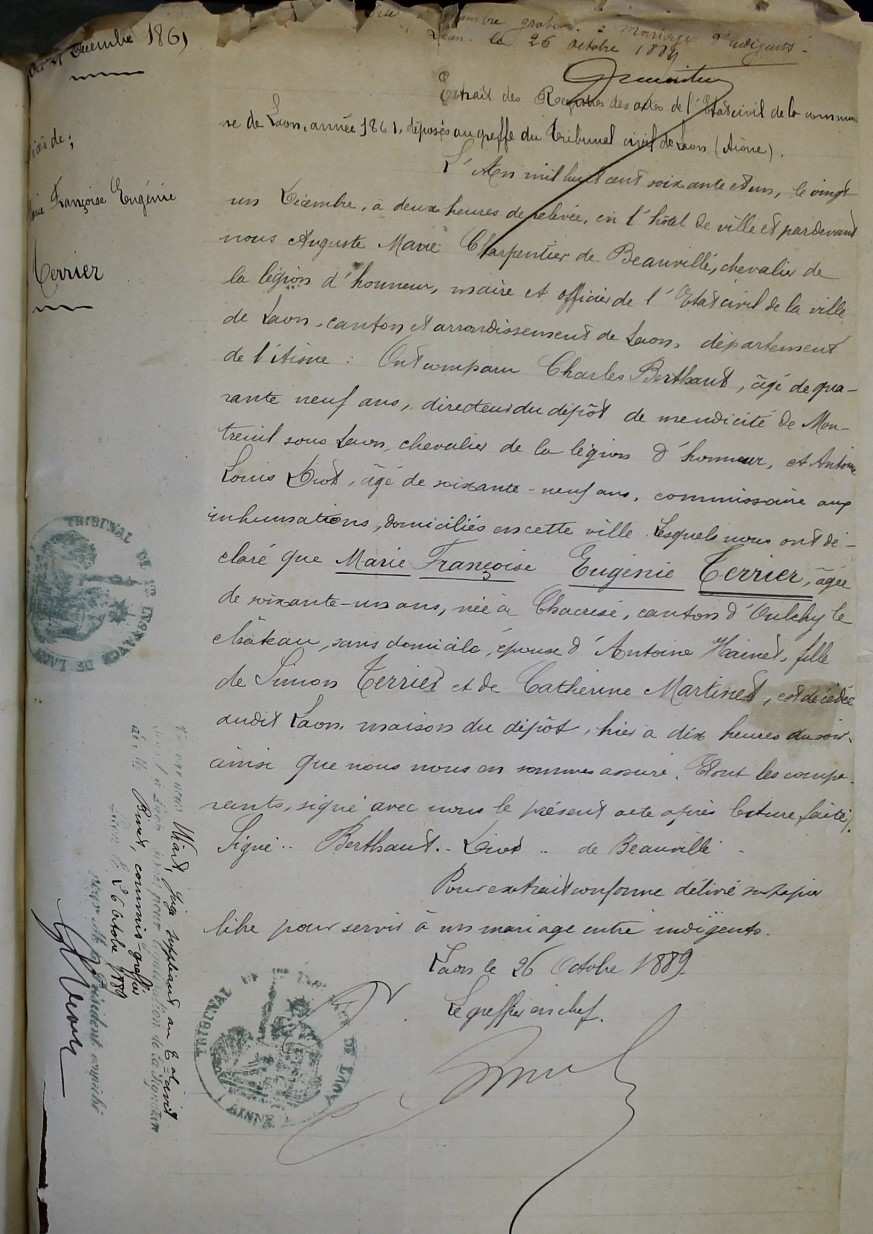 timbre gratis : Mariage d'indigents.
Laon le 26 octobre 1889
Décembre 1861
Extrait des Registres des actes de l'Etat civil de la commu
ne de Laon, année 1861, déposés au greffe du Tribunal civil de Laon (Aisne).
décès de :
Marie Françoise Eugénie
Terrier
L'An mil huit cent soixante et un, le vingt
un Décembre, à deux heures de relevée, en l'hôtel de ville et pardevant
nous Auguste Marie Charpentier de Beauvillé, chevalier de
la légion d'honneur, maire et officier de l'Etat civil de la ville
de Laon, canton et arrondissement de Laon, département
de l'Aisne : Ont comparu Charles Berthaut, âgé de qua-
rante neuf ans, directeur du dépôt de mendicité de Mon-
treuil sous Laon, chevalier de la légion d'honneur, et Antoine
Louis Liot, âgé de soixante-neuf ans, commissaire aux
inhumations, domiciliés en cette ville. Lesquels nous ont dé-
claré que Marie Françoise Eugénie Terrier, âgée
de soixante-un ans, née à Chacrise, canton d'Oulchy le
château, sans domicile, épouse d'Antoine Hainet, fille
de Simon Terrier et de Catherine Martinet, est décédée
audit Laon, maison du dépôt, hier à dix heures du soir,
ainsi que nous nous en sommes assuré. Et ont les compa-
rants, signé avec nous le présent acte après lecture faite).
Signé .. Berthaut .. Liot .. de Beauvillé.
Pour extrait conforme délivré sur papier
libre pour servir à un mariage entre indigents.
Laon le 26 Octobre 1889
Le greffier en chef.
TRIBUNAL DE 1re INSTANCE DE LAON
TRIBUNAL DE 1re INSTANCE DE LAON
AISNE
Vu par nous Wiart, juge suppléant au tribunal civil
séant à Laon pour légalisation de la signature
de M. commis-greffier
Laon le 26 octobre 1889
Président empêché